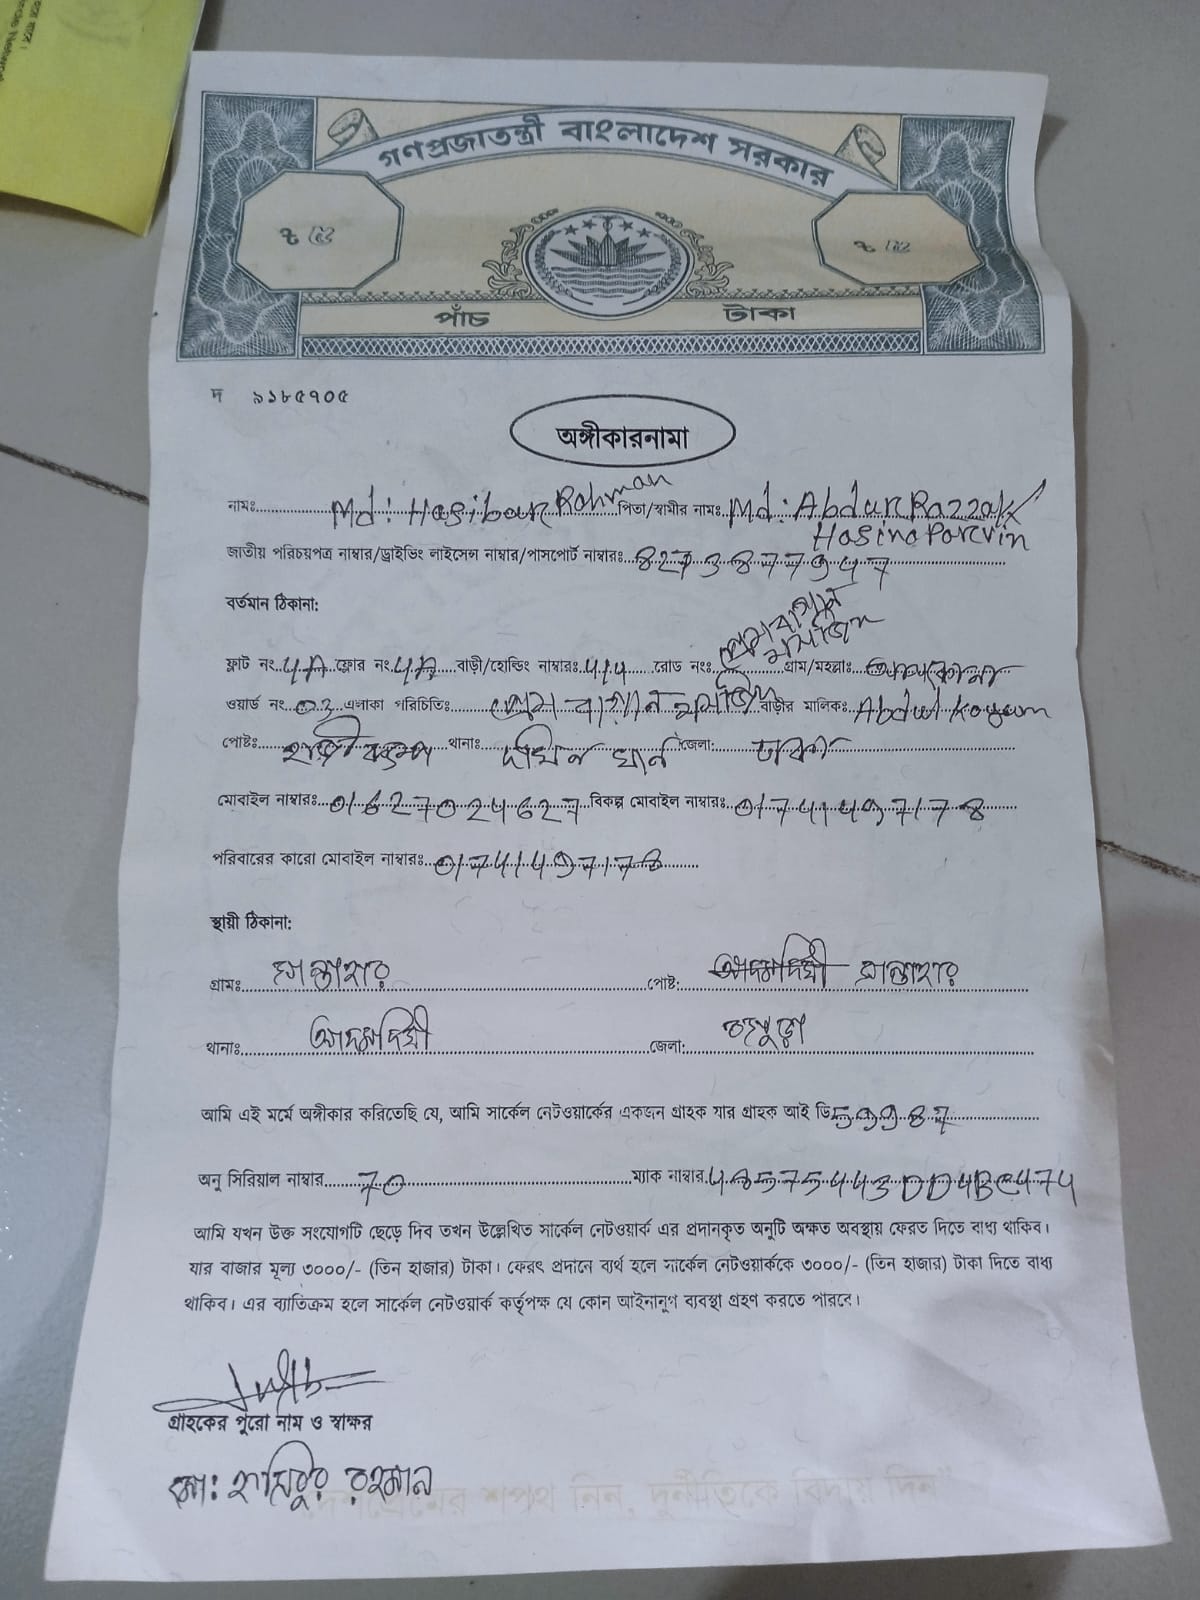 গণপ্রজাতন্ত্রী বাংলাদেশ সরকার
৳ ৫ ৳ ৫
পাঁচ টাকা
দ ৯১৮৫৭০৫
অঙ্গীকারনামা
নামঃ Md: Hasibur Rahman পিতা/স্বামীর নামঃ Md: Abdur Razzak
Hasina Parvin
জাতীয় পরিচয়পত্র নাম্বার/ড্রাইভিং লাইসেন্স নাম্বার/পাসপোর্ট নাম্বারঃ 8273877947
বর্তমান ঠিকানা:
প্রেম বাগান মসজিদ
ফ্লাট নং 4A ফ্লোর নং 4A বাড়ী/হোল্ডিং নাম্বারঃ 414 রোড নংঃ গ্রাম/মহল্লাঃ
ওয়ার্ড নং 03 এলাকা পরিচিতিঃ প্রেম বাগান মসজিদ বাড়ীর মালিকঃ Abdul Koyum
পোষ্টঃ থানাঃ দক্ষিন খান জেলা: ঢাকা
মোবাইল নাম্বারঃ 01627024627 বিকল্প মোবাইল নাম্বারঃ 01741497178
পরিবারের কারো মোবাইল নাম্বারঃ 01741497178
স্থায়ী ঠিকানা:
গ্রামঃ সান্তাহার পোষ্ট: আদমদিঘী সান্তাহার
থানাঃ আদমদিঘী জেলা: বগুড়া
আমি এই মর্মে অঙ্গীকার করিতেছি যে, আমি সার্কেল নেটওয়ার্কের একজন গ্রাহক যার গ্রাহক আই ডি 59987
অনু সিরিয়াল নাম্বার 70 ম্যাক নাম্বার 48575443DD4BC474
আমি যখন উক্ত সংযোগটি ছেড়ে দিব তখন উল্লেখিত সার্কেল নেটওয়ার্ক এর প্রদানকৃত অনুটি অক্ষত অবস্থায় ফেরত দিতে বাধ্য থাকিব।
যার বাজার মূল্য ৩০০০/- (তিন হাজার) টাকা। ফেরৎ প্রদানে ব্যর্থ হলে সার্কেল নেটওয়ার্ককে ৩০০০/- (তিন হাজার) টাকা দিতে বাধ্য
থাকিব। এর ব্যাতিক্রম হলে সার্কেল নেটওয়ার্ক কর্তৃপক্ষ যে কোন আইনানুগ ব্যবস্থা গ্রহণ করতে পারবে।
গ্রাহকের পুরো নাম ও স্বাক্ষর
মো: হাসিবুর রহমান
"দেশপ্রেমের শপথ নিন, দুর্নীতিকে বিদায় দিন"